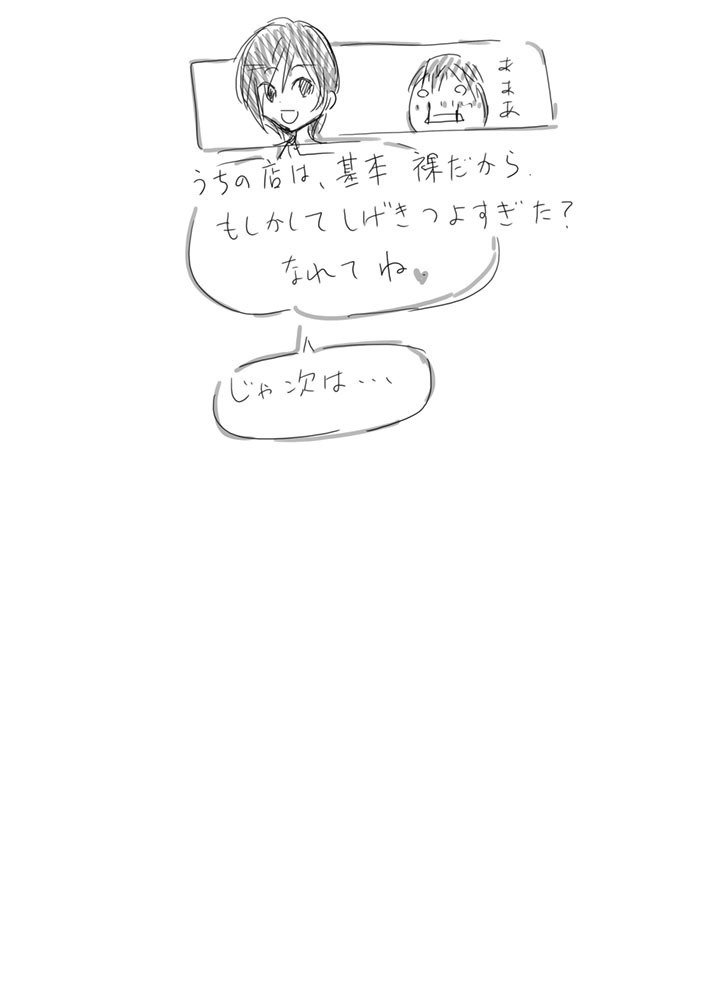 あああ
うちの店は、基本 裸だから.
もしかして しげきつよすぎた?
なれてね♥
じゃ次は・・・